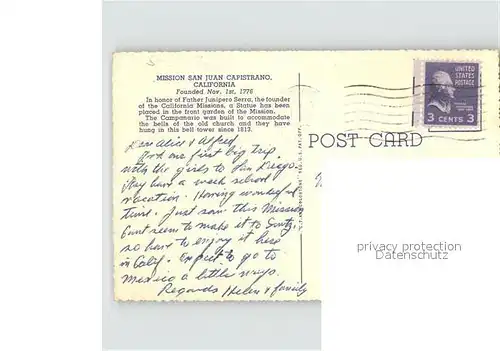 MISSION SAN JUAN CAPISTRANO,
CALIFORNIA
Founded Nov. 1st, 1776
In honor of Father Junipero Serra, the founder
of the California Missions, a Statue has been
placed in the front garden of the Mission.
The Campanario was built to accommodate
the bells of the old church and they have
hung in this bell tower since 1812.
UNITED
STATES
POSTAGE
3 CENTS 3
POST CARD
Dear Alice & Alfred,
first big trip
with the girls to San Diego.
They have a week school
vacation. Having wonderful
time. Just saw this Mission
Cant seem to make it to
so have to enjoy it here
in Calif. Expect to go to
Mexico a little ways.
Regards Helen & family
privacy protection
Datenschutz